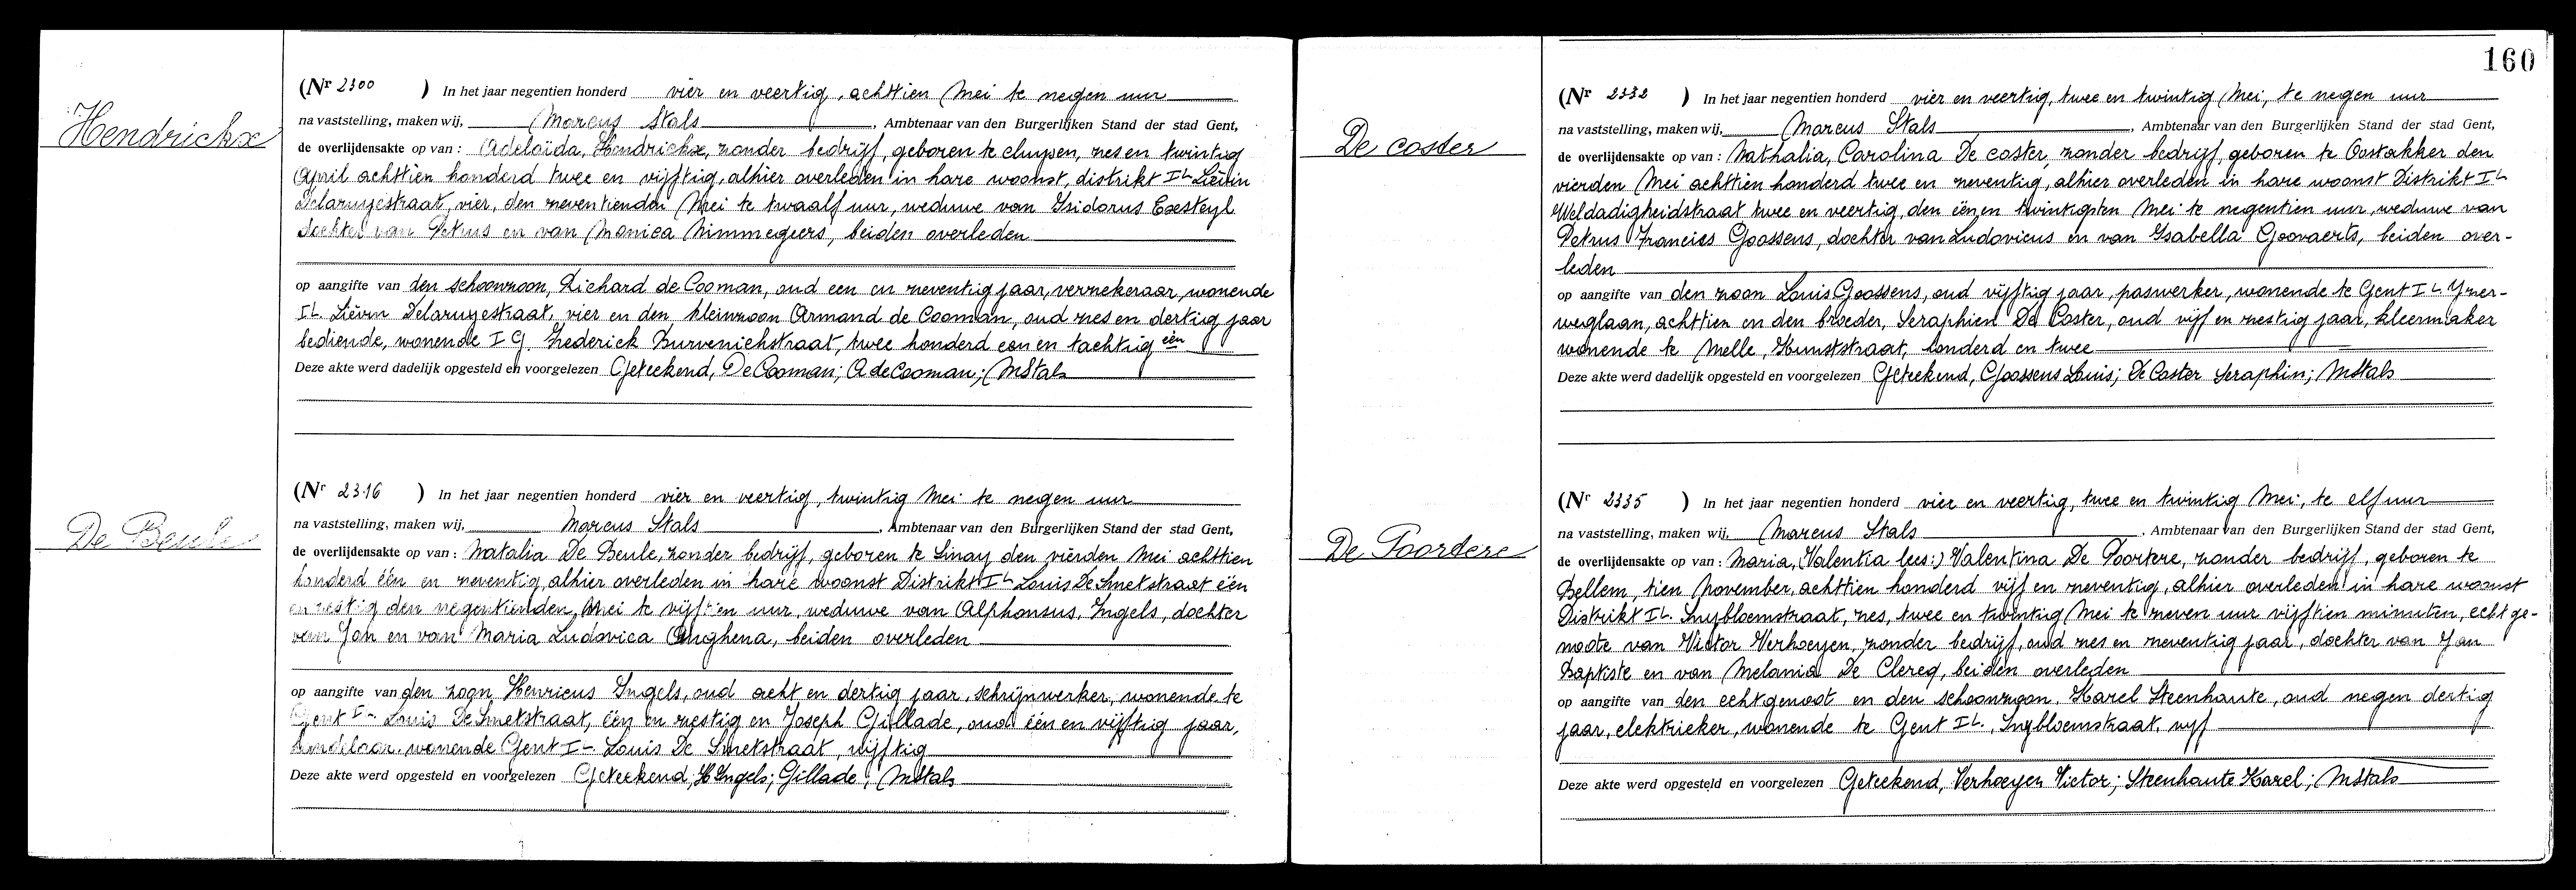 Hendrickx
(Nr 2300 ) In het jaar negentien honderd vier en veertig, achttien Mei te negen uur
na vaststelling, maken wij, Marcus Stals, Ambtenaar van den Burgerlijken Stand der stad Gent,
de overlijdensakte op van : Adelaïda, Hendrickx, zonder bedrijf, geboren te Cluysen, zes en twintig
April achttien honderd twee en vijftig, alhier overleden in hare woonst, distrikt IL Liévin
Delaruyestraat, vier, den zeventienden Mei te twaalf uur, weduwe van Isidorus Exsteyl
dochter van Petrus en van Monica Nimmegeers, beiden overleden
op aangifte van den schoonzoon, Richard de Cooman, oud een en zeventig jaar, verzekeraar, wonende
IL. Liévin Delaruyestraat, vier en den kleinzoon Armand de Cooman, oud zes en dertig jaar
bediende, wonende I G. Frederick Burvenichstraat, twee honderd een en tachtig
Deze akte werd dadelijk opgesteld en voorgelezen Geteekend, De Cooman; A de Cooman; MStals
De Beule
(Nr 2316 ) In het jaar negentien honderd vier en veertig, twintig Mei te negen uur
na vaststelling, maken wij, Marcus Stals, Ambtenaar van den Burgerlijken Stand der stad Gent,
de overlijdensakte op van : Natalia De Beule, zonder bedrijf, geboren te Sinay den vierden Mei achttien
honderd één en zeventig, alhier overleden in hare woonst Distrikt IL Louis De Smetstraat één
en zestig den negentienden Mei te vijftien uur, weduwe van Alphonsus, Ingels, dochter
van Jan en van Maria Ludovica Anghena, beiden overleden
op aangifte van den zoon Henricus Ingels, oud acht en dertig jaar, schrijnwerker, wonende te
Gent IL Louis De Smetstraat, één en zestig en Joseph Gillade, oud één en vijftig jaar,
handelaar, wonende Gent IL Louis De Smetstraat, vijftig
Deze akte werd opgesteld en voorgelezen Geteekend, H Ingels; Gillade; MStals
160
De coster
(Nr 2332 ) In het jaar negentien honderd vier en veertig, twee en twintig Mei, te negen uur
na vaststelling, maken wij, Marcus Stals, Ambtenaar van den Burgerlijken Stand der stad Gent,
de overlijdensakte op van : Nathalia, Carolina De coster, zonder bedrijf, geboren te Oostakker den
vierden Mei achttien honderd twee en zeventig, alhier overleden in hare woonst Distrikt IL
Weldadigheidstraat twee en veertig, den één en twintigsten Mei te negentien uur, weduwe van
Petrus Francies Goossens, dochter van Ludovicus en van Isabella Goovaerts, beiden over-
leden
op aangifte van den zoon Louis Goossens, oud vijftig jaar, paswerker, wonende te Gent IL Yzer-
weglaan, achttien en den broeder, Seraphien De Coster, oud vijf en zestig jaar, kleermaker
wonende te Melle, Kunststraat, honderd en twee
Deze akte werd dadelijk opgesteld en voorgelezen Geteekend, Goossens Louis; De Coster Seraphin; MStals
De Poortere
(Nr 2335 ) In het jaar negentien honderd vier en veertig, twee en twintig Mei, te elf uur
na vaststelling, maken wij, Marcus Stals, Ambtenaar van den Burgerlijken Stand der stad Gent,
de overlijdensakte op van : Maria, (Valentia lees:) Valentina De Poortere, zonder bedrijf, geboren te
Bellem, tien November, achttien honderd vijf en zeventig, alhier overleden in hare woonst
Distrikt IL. Snybloemstraat, zes, twee en twintig Mei te zeven uur vijftien minuten, echtge-
noote van Victor Verhoeyen, zonder bedrijf, oud zes en zeventig jaar, dochter van Jan
Baptiste en van Melania De Clercq, beiden overleden
op aangifte van den echtgenoot en den schoonzoon, Karel Steenhaute, oud negen dertig
jaar, elektrieker, wonende te Gent IL., Snybloemstraat, vyf
Deze akte werd opgesteld en voorgelezen Geteekend, Verhoeyen Victor; Steenhaute Karel; MStals